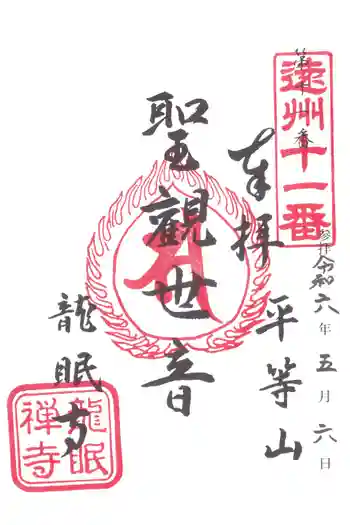 遠州十一番
第十一番
参拝令和六年五月六日
奉拝
平等山
聖觀世音
龍眠寺
龍眠
禅寺